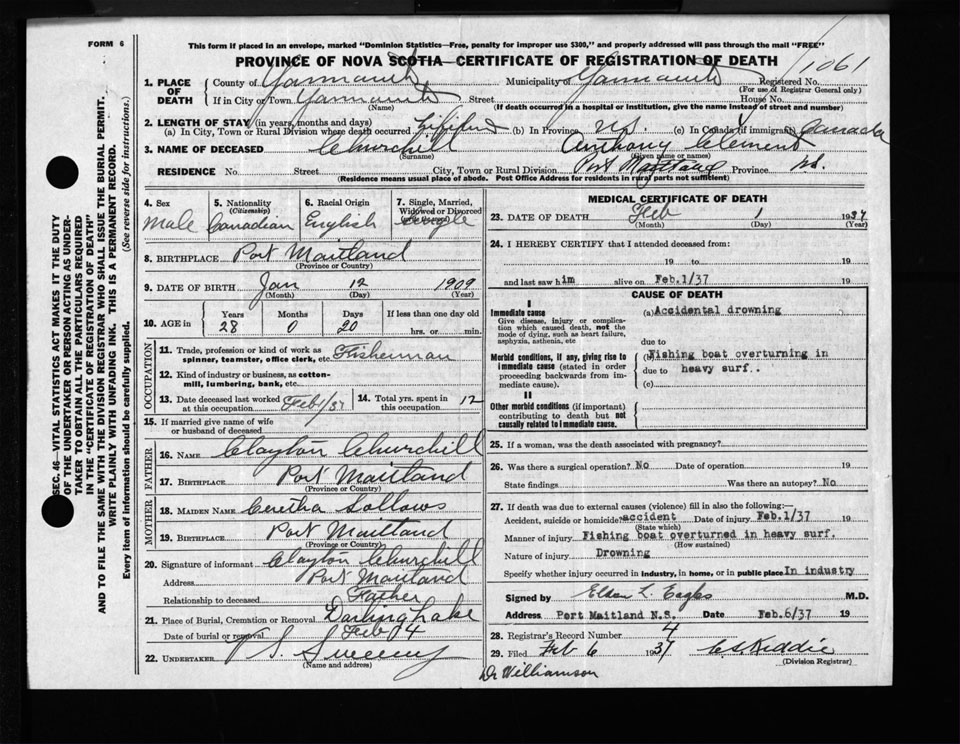 FORM 6
This form if placed in an envelope, marked "Dominion Statistics—Free, penalty for improper use $300," and properly addressed will pass through the mail "FREE"
PROVINCE OF NOVA SCOTIA—CERTIFICATE OF REGISTRATION OF DEATH
1061
1. PLACE OF DEATH
County of Yarmouth Municipality of Yarmouth Registered No.
(For use of Registrar General only)
If in City or Town Yarmouth Street House No.
(Name) (If death occurred in a hospital or institution, give the name instead of street and number)
2. LENGTH OF STAY (in years, months and days)
(a) In City, Town or Rural Division where death occurred (b) In Province N.S. (c) In Canada (if immigrant) Canada
3. NAME OF DECEASED Churchill Anthony Clement
(Surname) (Given name or names)
RESIDENCE No. Street City, Town or Rural Division Port Maitland Province N.S.
(Residence means usual place of abode. Post Office Address for residents in rural parts not sufficient)
4. Sex Male
5. Nationality (Citizenship) Canadian
6. Racial Origin English
7. Single, Married, Widowed or Divorced Single
8. BIRTHPLACE Port Maitland
(Province or Country)
9. DATE OF BIRTH Jan 12 1909
(Month) (Day) (Year)
10. AGE in Years 28 Months 0 Days 20 If less than one day old hrs. or min.
OCCUPATION
11. Trade, profession or kind of work as spinner, teamster, office clerk, etc. Fisherman
12. Kind of industry or business, as cotton-mill, lumbering, bank, etc.
13. Date deceased last worked at this occupation Feb 1/37
14. Total yrs. spent in this occupation 12
15. If married give name of wife or husband of deceased
FATHER
16. NAME Clayton Churchill
17. BIRTHPLACE Port Maitland
(Province or Country)
MOTHER
18. MAIDEN NAME Ceretha Sollows
19. BIRTHPLACE Port Maitland
(Province or Country)
20. Signature of informant Clayton Churchill
Address Port Maitland
Relationship to deceased Father
21. Place of Burial, Cremation or Removal Darling Lake
Date of burial or removal Feb 4
22. UNDERTAKER V S. Sweeny
(Name and address)
MEDICAL CERTIFICATE OF DEATH
23. DATE OF DEATH Feb 1 1937
(Month) (Day) (Year)
24. I HEREBY CERTIFY that I attended deceased from:
19 to 19
and last saw him alive on Feb.1/37 19
CAUSE OF DEATH
I
Immediate cause
Give disease, injury or complication which caused death, not the mode of dying, such as heart failure, asphyxia, asthenia, etc
(a) Accidental drowning
due to
Morbid conditions, if any, giving rise to immediate cause (stated in order proceeding backwards from immediate cause).
(b) Fishing boat overturning in
due to heavy surf..
(c)
II
Other morbid conditions (if important) contributing to death but not causally related to immediate cause.
25. If a woman, was the death associated with pregnancy?
26. Was there a surgical operation? No Date of operation 19
State findings Was there an autopsy? No
27. If death was due to external causes (violence) fill in also the following:—
Accident, suicide or homicide accident Date of injury Feb.1/37 19
(State which)
Manner of injury Fishing boat overturned in heavy surf.
(How sustained)
Nature of injury Drowning
Specify whether injury occurred in industry, in home, or in public place In industry
Signed by L. Eagles M.D.
Address Port Maitland N.S. Date Feb.6/37 19
28. Registrar's Record Number 4
29. Filed Feb 6 1937 Kiddie
(Division Registrar)
Dr Williamson
SEC. 46—VITAL STATISTICS ACT MAKES IT THE DUTY
OF THE UNDERTAKER OR PERSON ACTING AS UNDER-
TAKER TO OBTAIN ALL THE PARTICULARS REQUIRED
IN THE "CERTIFICATE OF REGISTRATION OF DEATH"
AND TO FILE THE SAME WITH THE DIVISION REGISTRAR WHO SHALL ISSUE THE BURIAL PERMIT.
WRITE PLAINLY WITH UNFADING INK. THIS IS A PERMANENT RECORD.
Every item of information should be carefully supplied. (See reverse side for instructions.)